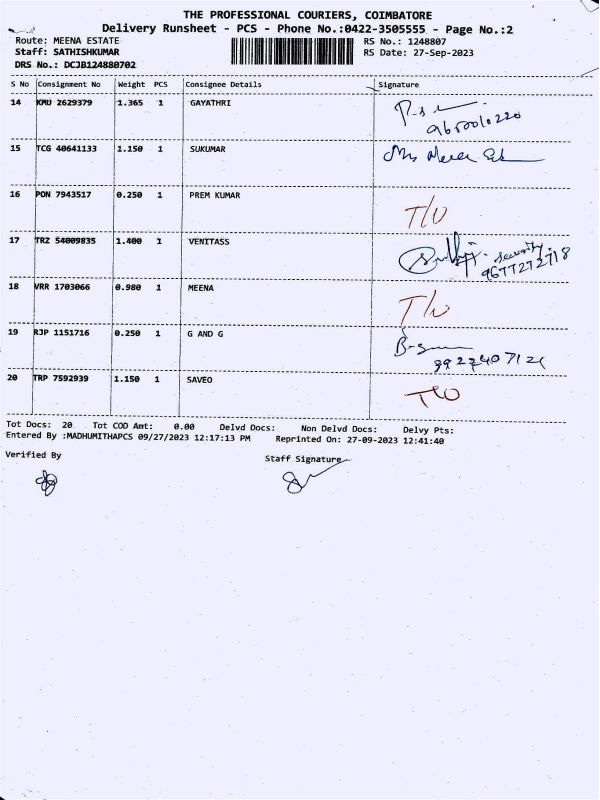 THE PROFESSIONAL COURIERS, COIMBATORE
Delivery Runsheet - PCS - Phone No.:0422-3505555 - Page No.:2
Route: MEENA ESTATE RS No.: 1248807
Staff: SATHISHKUMAR RS Date: 27-Sep-2023
DRS No.: DCJB124880702
S No Consignment No Weight PCS Consignee Details Signature
14 KMU 2629379 1.365 1 GAYATHRI
15 TCG 40641133 1.150 1 SUKUMAR
16 PON 7943517 0.250 1 PREM KUMAR
17 TRZ 54009835 1.400 1 VENITASS security
9677272718
18 VRR 1703066 0.980 1 MEENA
19 RJP 1151716 0.250 1 G AND G
20 TRP 7592939 1.150 1 SAVEO
Tot Docs: 20 Tot COD Amt: 0.00 Delvd Docs: Non Delvd Docs: Delvy Pts:
Entered By :MADHUMITHAPCS 09/27/2023 12:17:13 PM Reprinted On: 27-09-2023 12:41:40
Verified By Staff Signature